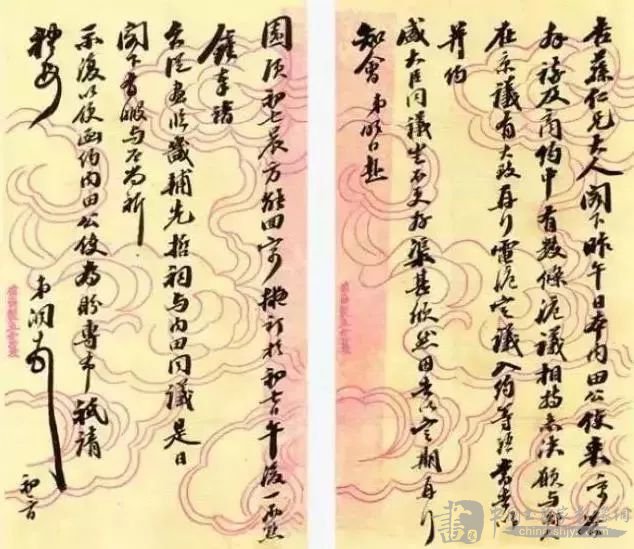 杏蓀仁兄大人閣下昨午日本內田公使來寓
拜談及商約中有數條滬議相持未決願與
在京議有大致再行電滬定議入約等語
并約
盛大臣同議豈不更好渠甚欣然因告以定期再行
知會弟明日赴
園須初七晨方能回寓擬訂於初七日午後一兩點
鐘奉請
台從惠臨畿輔先哲祠與內田同議是日
閣下有暇與否祈
示復以便函約內田公使為盼專布祗請
禮安
弟洞頓首